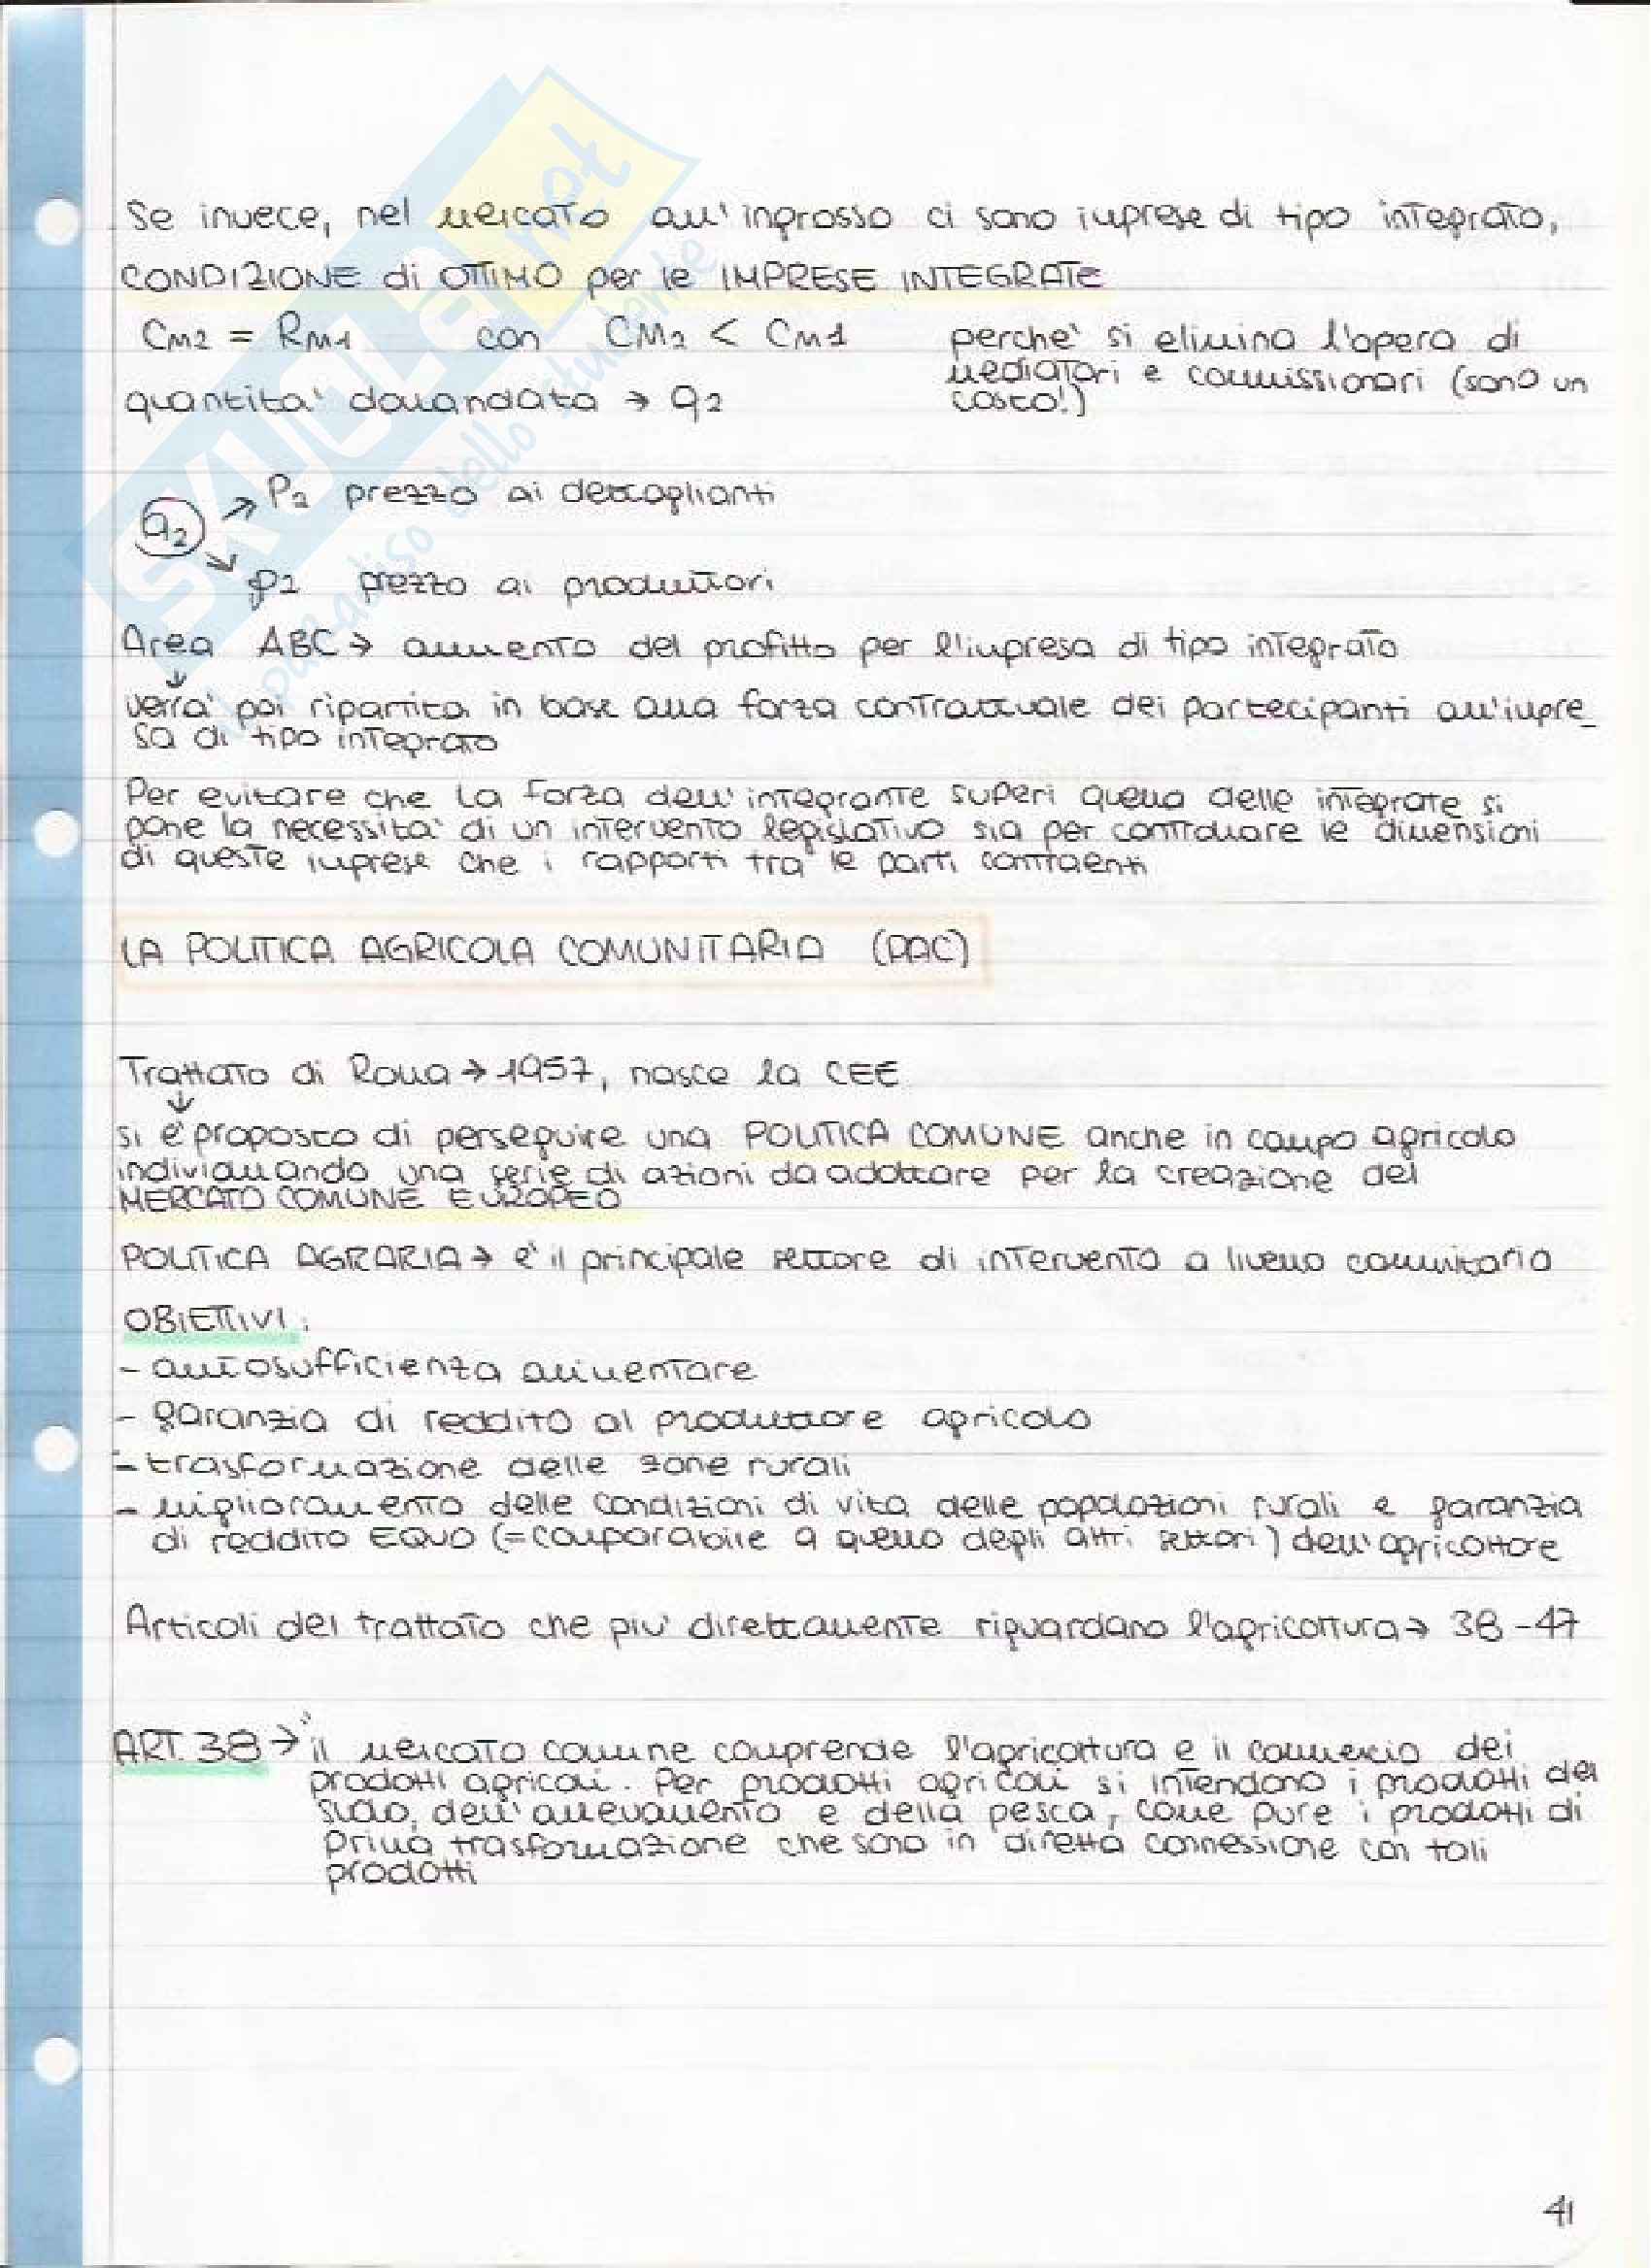 Se invece, nel mercato all'ingrosso ci sono imprese di tipo integrato,
CONDIZIONE di OTTIMO per le IMPRESE INTEGRATE
CM2 = RM1 con CM2 < CM1 perche' si elimina l'opera di
mediatori e commissionari (sono un
costo!)
quantita' domandata → q2
Q2 → P2 prezzo ai dettaglianti
→ p2 prezzo ai produttori
Area ABC → aumento del profitto per l'impresa di tipo integrato
↓
verra' poi ripartita in base alla forza contrattuale dei partecipanti all'impre_
sa di tipo integrato
Per evitare che la forza dell'integrante superi quella delle integrate si
pone la necessita' di un intervento legislativo sia per controllare le dimensioni
di queste imprese che i rapporti tra le parti contraenti
LA POLITICA AGRICOLA COMUNITARIA (PAC)
Trattato di Roma → 1957, nasce la CEE
↓
si e' proposto di perseguire una POLITICA COMUNE anche in campo agricolo
individuando una serie di azioni da adottare per la creazione del
MERCATO COMUNE EUROPEO
POLITICA AGRARIA → e' il principale settore di intervento a livello comunitario
OBIETTIVI:
- autosufficienza alimentare
- garanzia di reddito al produttore agricolo
- trasformazione delle zone rurali
- miglioramento delle condizioni di vita delle popolazioni rurali e garanzia
di reddito EQUO (=comparabile a quello degli altri settori) dell'agricoltore
Articoli del trattato che piu' direttamente riguardano l'agricoltura → 38-47
ART. 38 → "il mercato comune comprende l'agricoltura e il commercio dei
prodotti agricoli. Per prodotti agricoli si intendono i prodotti del
suolo, dell'allevamento e della pesca, come pure i prodotti di
prima trasformazione che sono in diretta connessione con tali
prodotti
41
SKUOLA.net
il paradiso dello studente